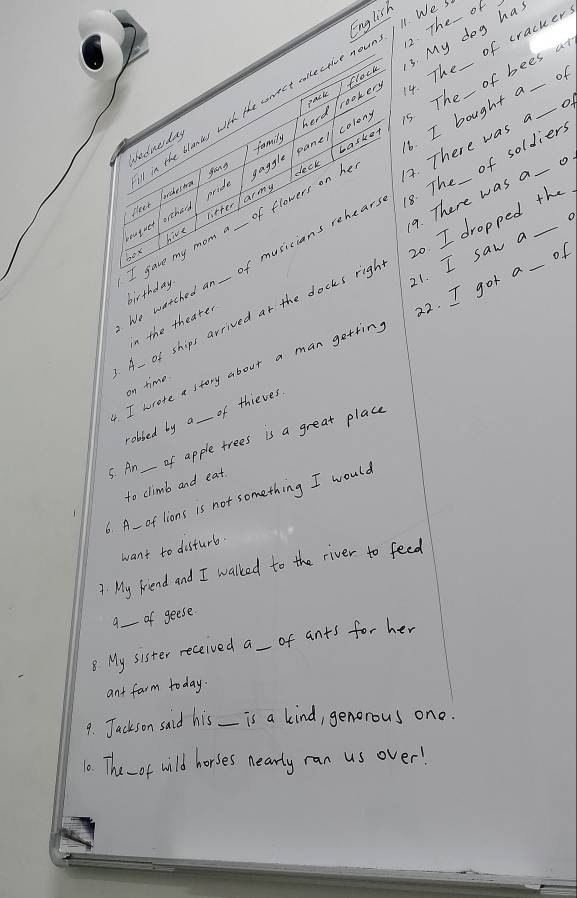 English
Wednesday
Fill in the blanks with the correct collective nouns.
fleet orchestra gang family pack flock
bouquet orchard pride gaggle herd rookery
box hive litter army panel colony
deck basket
1. I gave my mom a _ of flowers on her
birthday.
2. We watched an _ of musicians rehearse
in the theater.
3. A _ of ships arrived at the docks right
on time.
4. I wrote a story about a man getting
robbed by a _ of thieves.
5. An _ of apple trees is a great place
to climb and eat.
6. A _ of lions is not something I would
want to disturb.
7. My friend and I walked to the river to feed
a _ of geese.
8. My sister received a _ of ants for her
ant farm today.
9. Jackson said his _ is a kind, generous one.
10. The _ of wild horses nearly ran us over!
11. We
12. The _ of
13. My dog has
14. The _ of crackers
15. The _ of bees
16. I bought a _ of
17. There was a _ of
18. The _ of soldiers
19. There was a _
20. I dropped the
21. I saw a _
22. I got a _ of